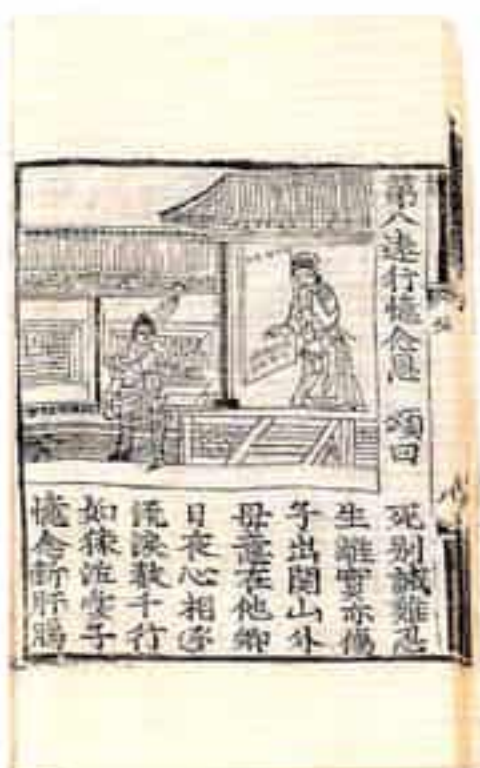 第八遠行憶念恩 頌曰
死別誠難忍
生離實亦傷
子出關山外
母意在他鄉
日夜心相逐
流淚數千行
如猿泣愛子
憶念斷肝腸